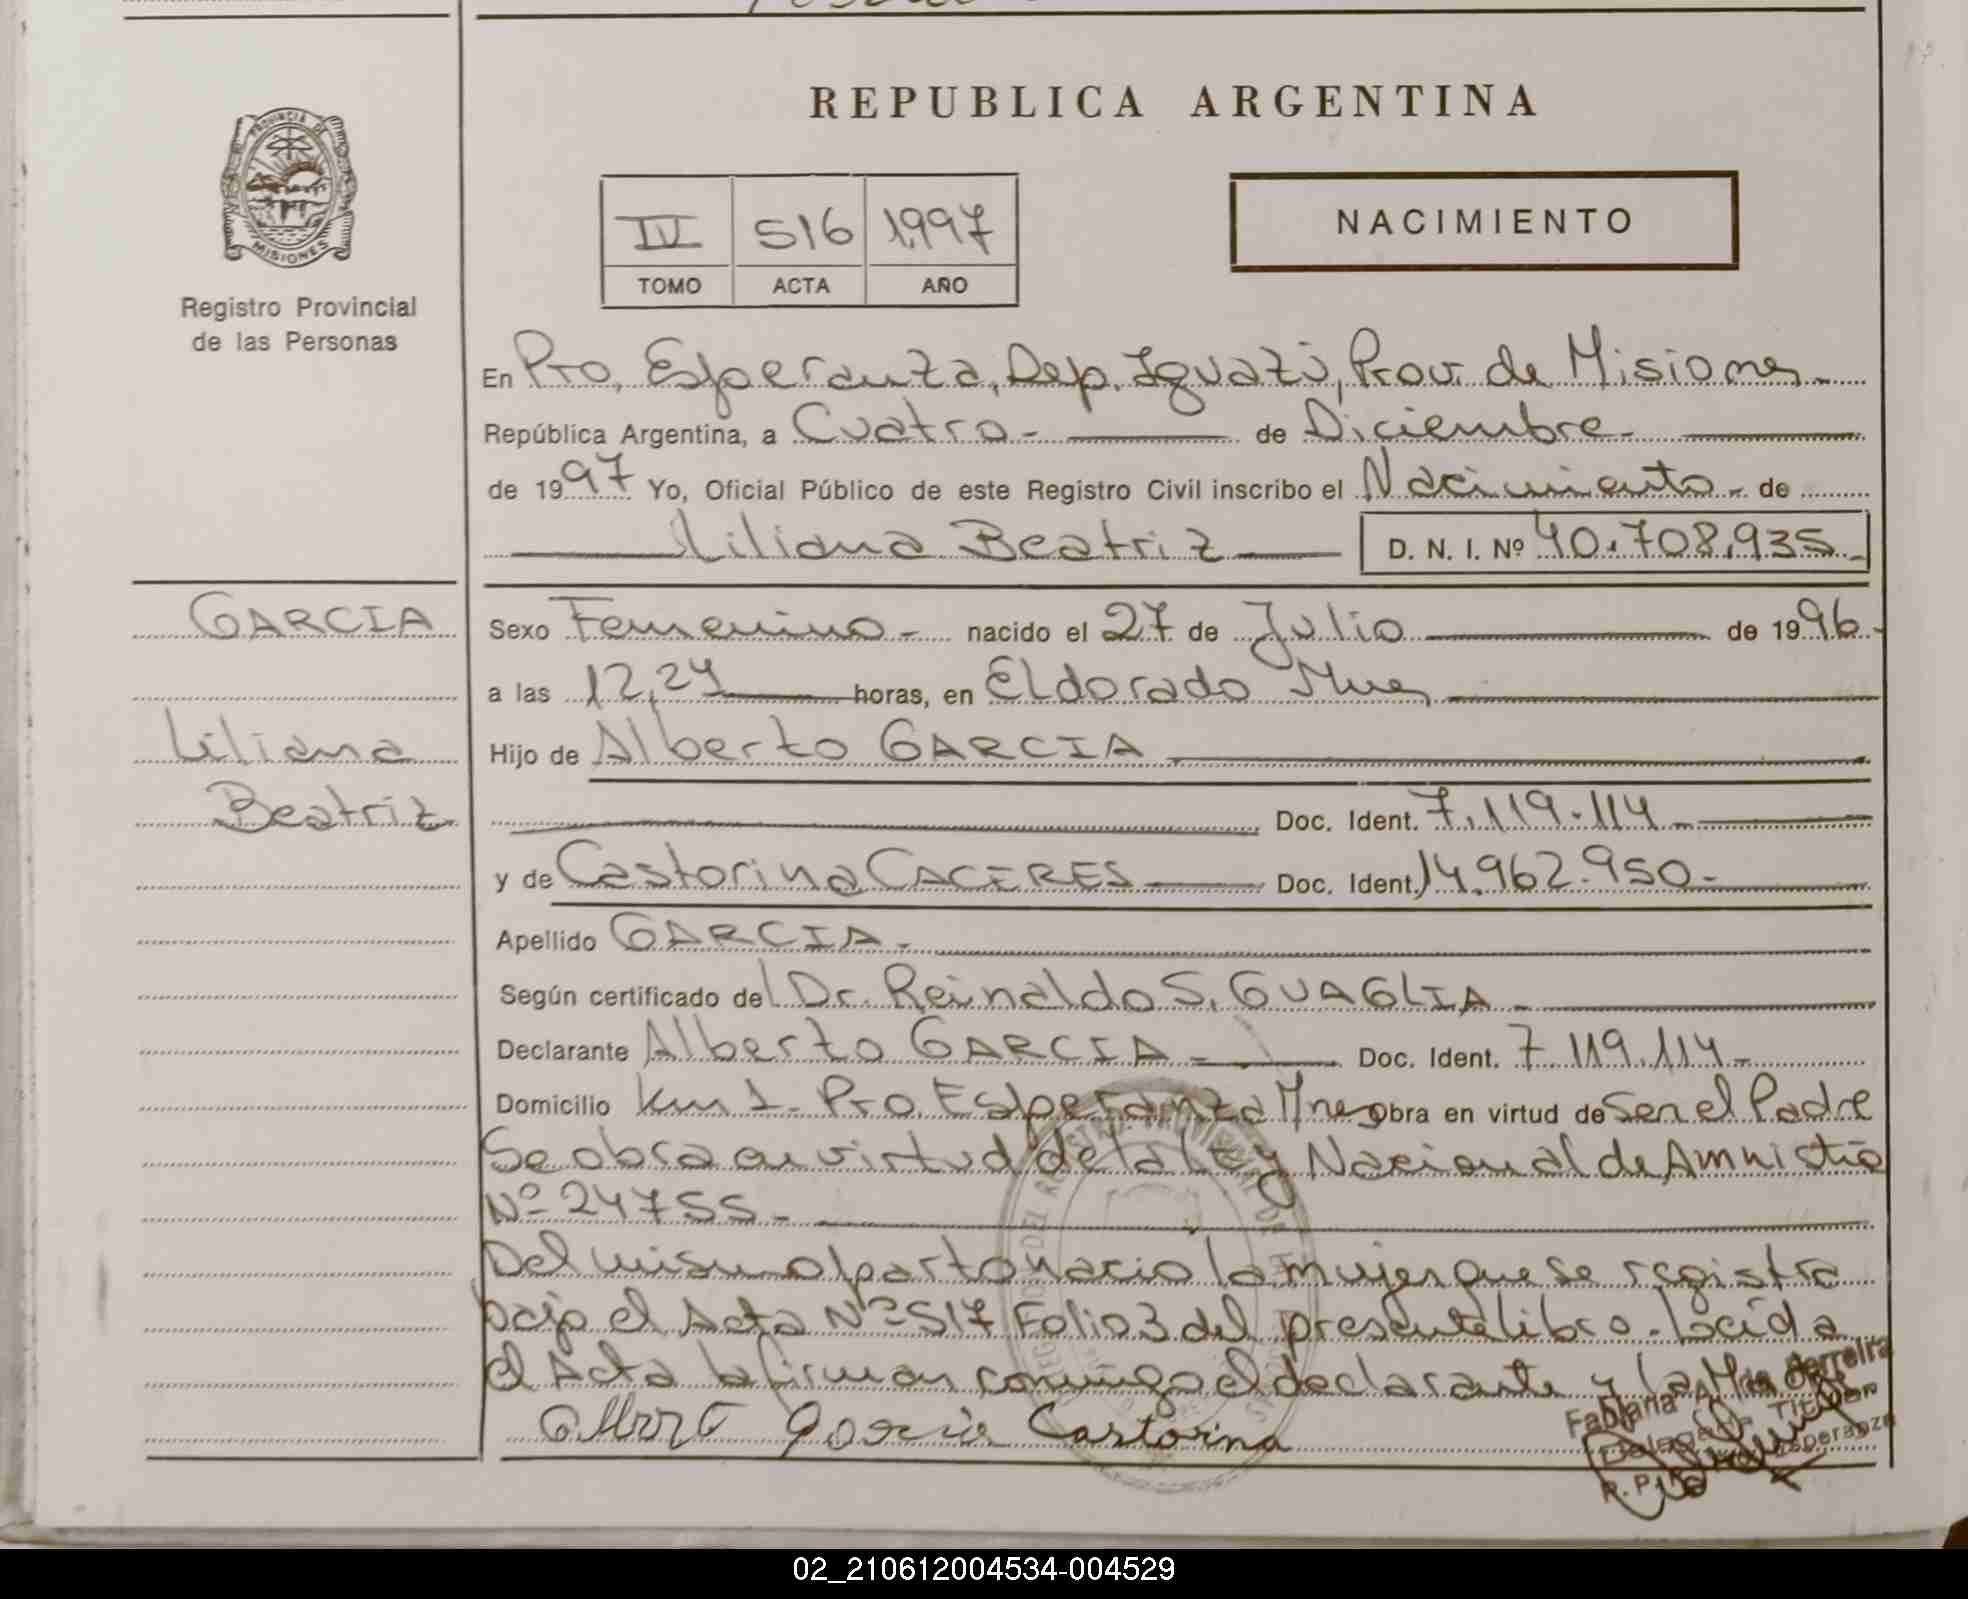 REPUBLICA ARGENTINA
PROVINCIA DE MISIONES
Registro Provincial
de las Personas
IV 516 1997
TOMO ACTA AÑO
NACIMIENTO
En Pto. Esperanza, Dep. Iguazú, Prov. de Misiones
República Argentina, a Cuatro de Diciembre
de 1997 Yo, Oficial Público de este Registro Civil inscribo el Nacimiento de
Liliana Beatriz D. N. I. Nº 40.708.935
GARCIA
Liliana
Beatriz
Sexo Femenino nacido el 27 de Julio de 1996
a las 12,24 horas, en Eldorado Mnes
Hijo de Alberto GARCIA
Doc. Ident. 7.119.114
y de Castorina CACERES Doc. Ident. 14.962.950
Apellido GARCIA
Según certificado del Dr. Reinaldo S. GUAGLIA
Declarante Alberto GARCIA Doc. Ident. 7.119.114
Domicilio km 1 - Pto. Esperanza Mnes obra en virtud de Ser el Padre
Se obra en virtud de la Ley Nacional de Amnistia
Nº 24755
Del mismo parto nacio la mujer que se registra
bajo el Acta Nº 517 Folio 3 del presente libro. Leida
el Acta la firman conmigo el declarante y la Mna
Alberto Garcia Castorina
Fabiana A. Ferreira
Delegada Titular
Esperanza
02_210612004534-004529